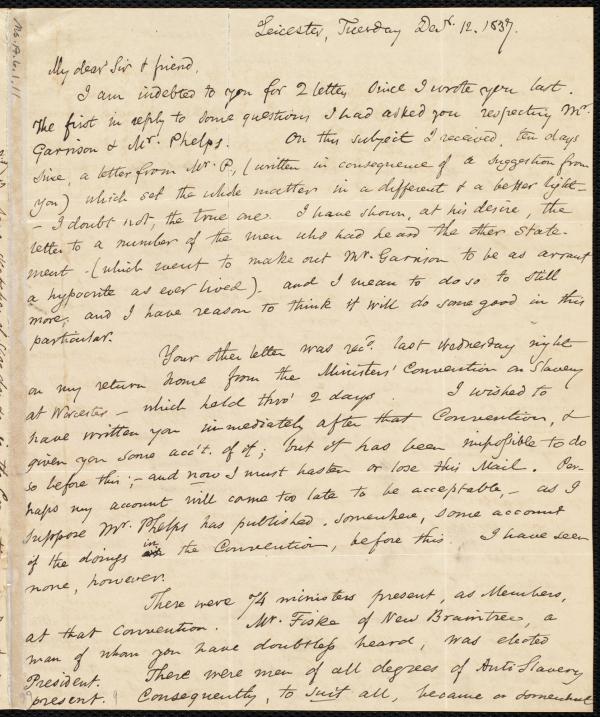 Leicester, Tuesday Decr. 12. 1837.
My dear Sir & friend,
I am indebted to you for 2 letters since I wrote you last.
The first in reply to some questions I had asked you respecting Mr.
Garrison & Mr. Phelps. On this subject I received, ten days
since, a letter from Mr. P., (written in consequence of a suggestion from
you) which set the whole matter in a different & a better light–
– I doubt not, the true one. I have shown, at his desire, the
letter to a number of the men who had heard the other state-
ment – (which went to make out Mr. Garrison to be as arrant
a hypocrite as ever lived). and I mean to do so to still
more, and I have reason to think it will do some good in this
particular.
Your other letter was recd. last Wednesday night
on my return home from the Ministers' Convention on Slavery
at Worcester – which held thro' 2 days. I wished to
have written you immediately after that Convention, &
given you some acc't. of it; but it has been impossible to do
so before this; – and now I must hasten or lose this Mail. Per-
haps my account will come too late to be acceptable, – as I
suppose Mr. Phelps has published, somewhere, some account
of the doings in the Convention, before this. I have seen
none, however.
There were 74 ministers present, as Members,
at that Convention. Mr. Fiske of New Braintree, a
man of whom you have doubtless heard, was elected
President. There were men of all degrees of Anti Slavery
present. Consequently, to suit all, became a somewhat
Ms.A.1.11